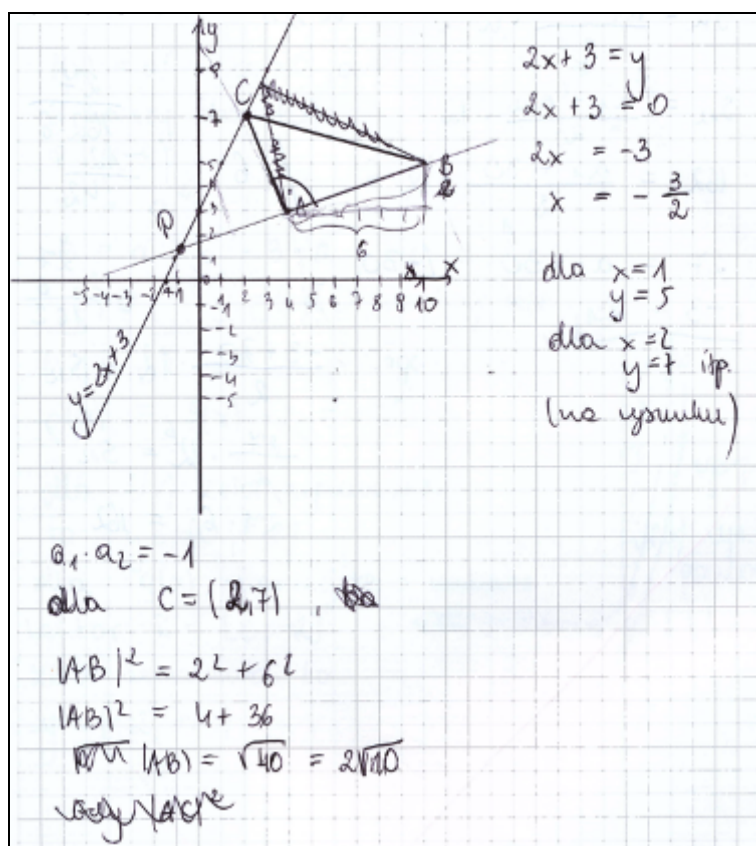 y
9
7
5
4
3
2
1
C
B
2
A
P
6
x
-5 -4 -3 -2 -1 1 2 3 4 5 6 7 8 9 10
-1
-2
-3
-4
-5
y=2x+3
2x + 3 = y
2x + 3 = 0
2x = -3
x = - 3/2
dla x=1
y=5
dla x=2
y=7 itp.
(na rysunku)
a₁ · a₂ = -1
dla C = (2,7)
|AB|² = 2² + 6²
|AB|² = 4 + 36
|AB| = √40 = 2√10